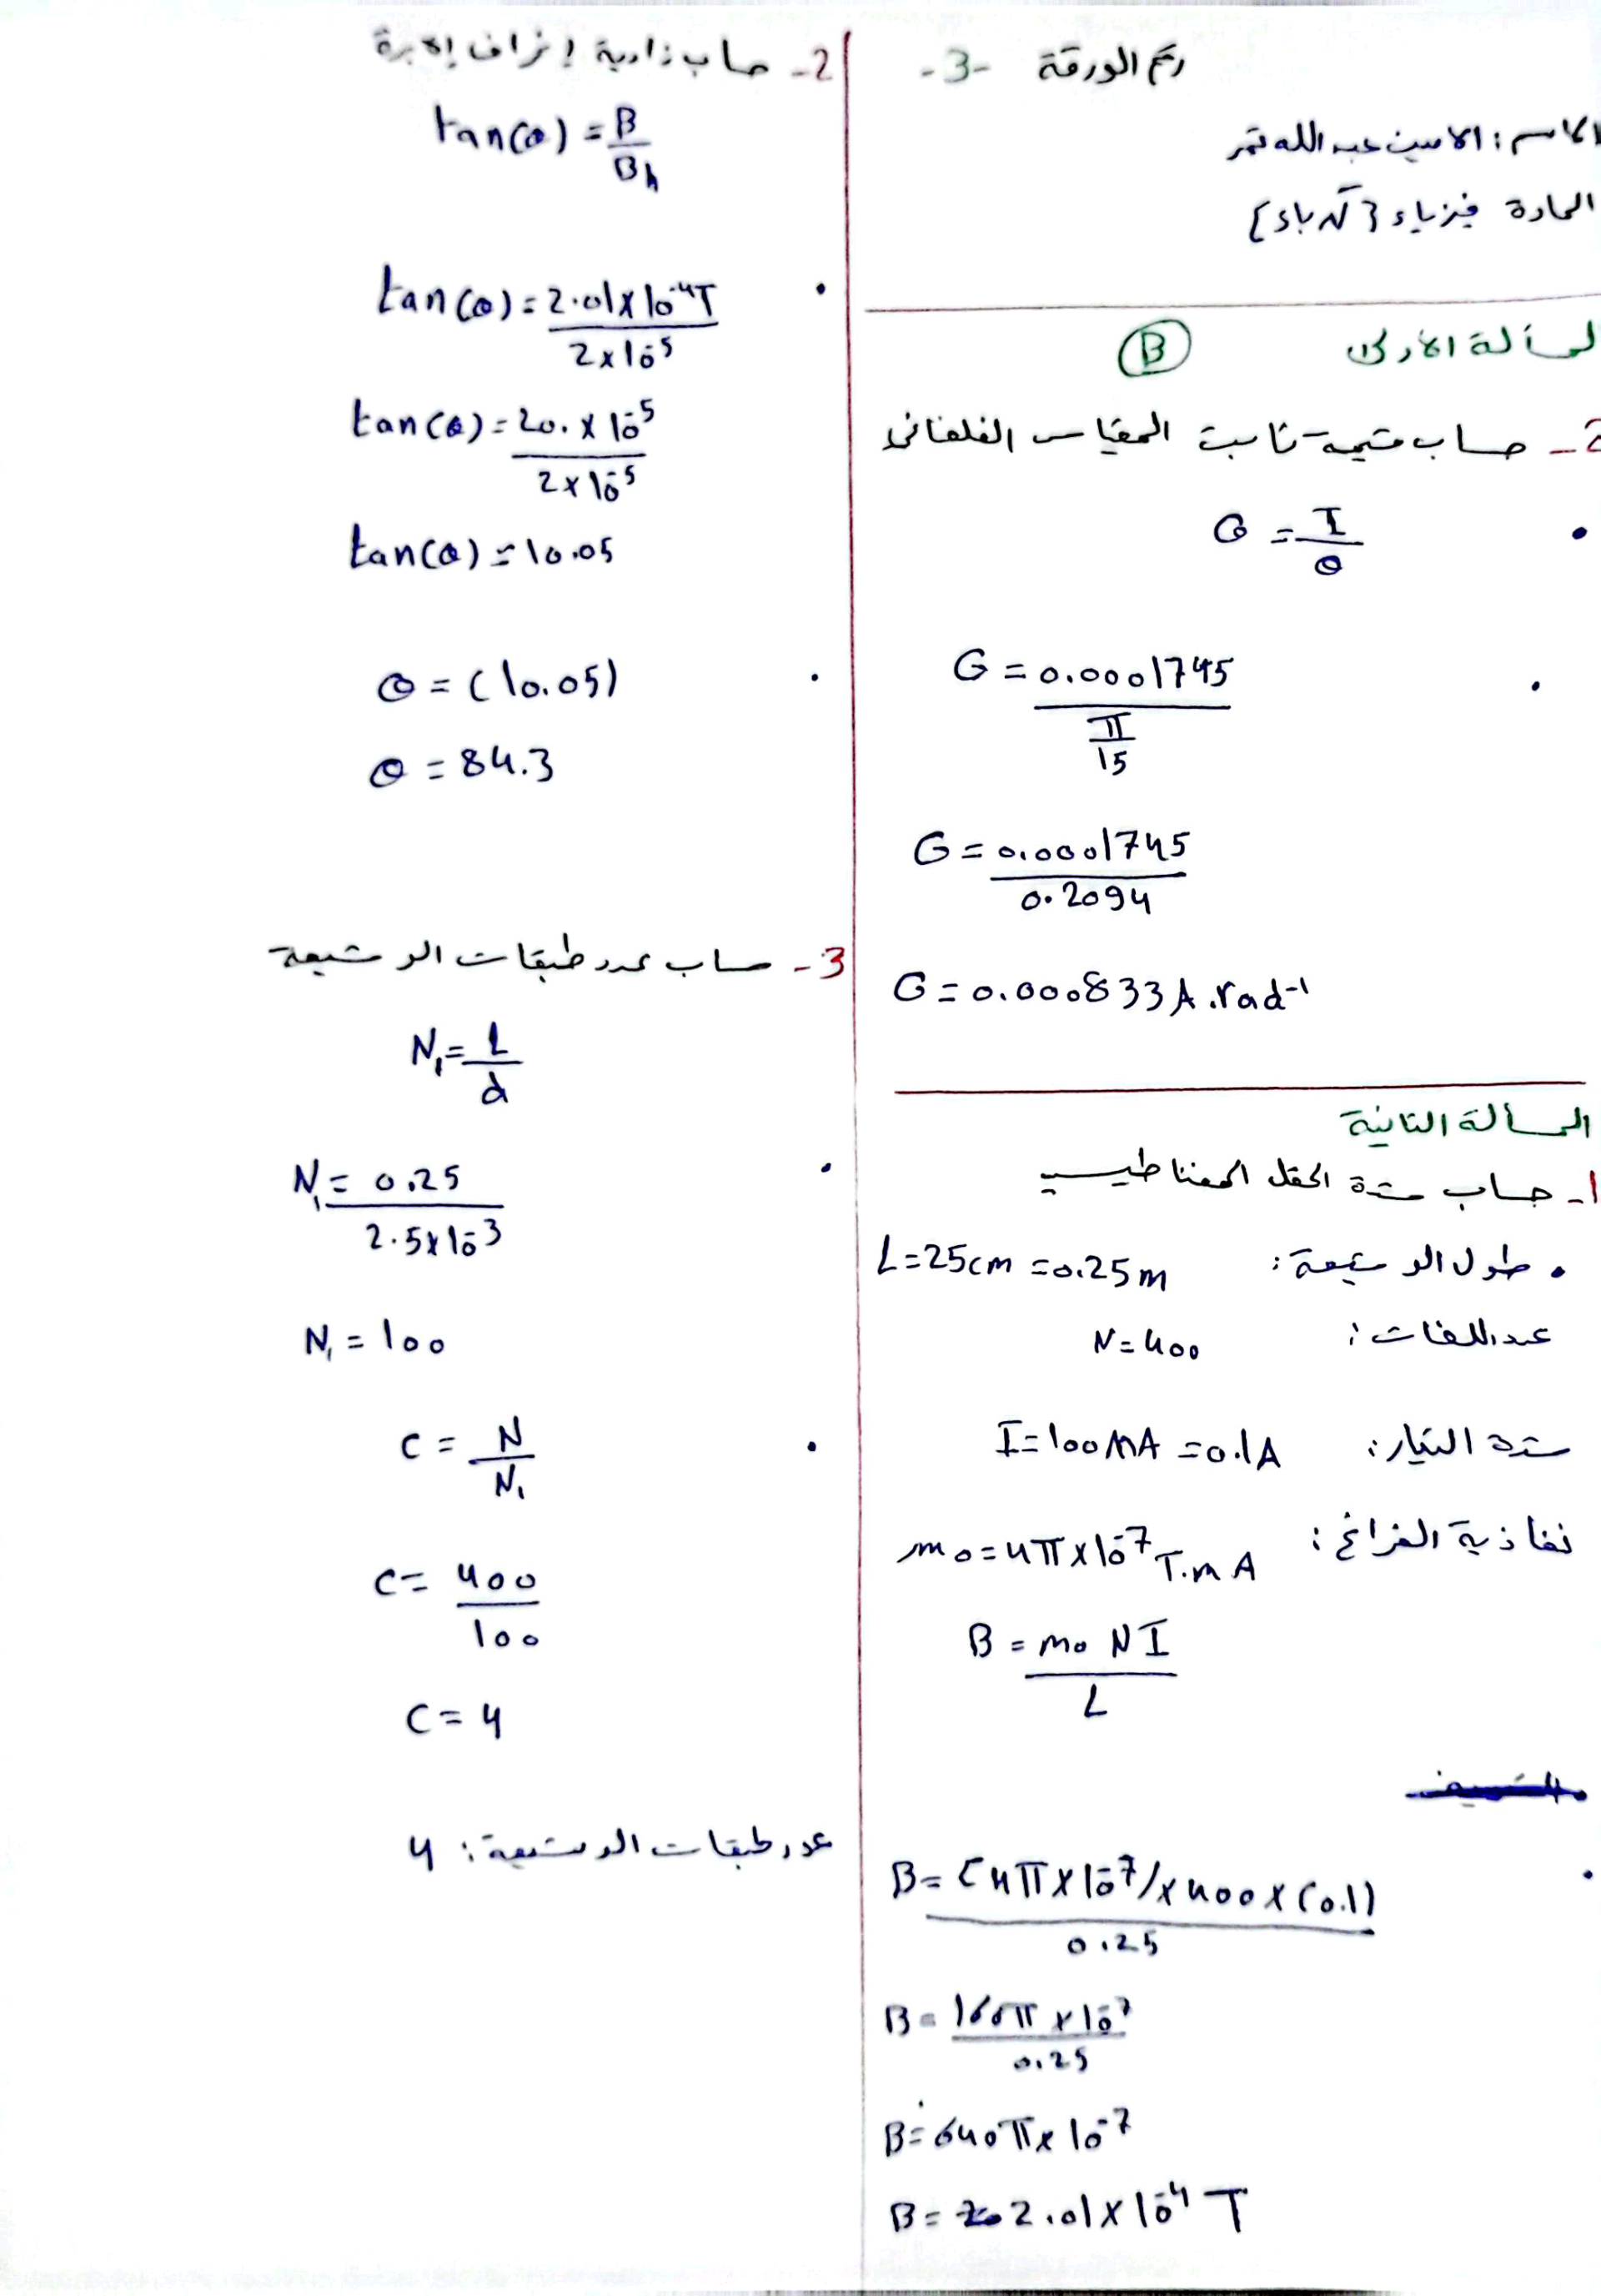 رقم الورقة -3-
الاسم: الامين عبد الله تمر
المادة فيزياء {كهرباء}
لمسألة الأولى B
2- حساب قيمة ثابت المقياس الغلفاني
G = I / θ
G = 0.0001745 / (π / 15)
G = 0.0001745 / 0.2094
G = 0.000833 A.rad⁻¹
المسألة الثانية
1- حساب شدة الحقل المغناطيسي
• طول الوشيعة: L=25cm =0.25m
عدد اللفات: N=400
شدة التيار: I=100mA =0.1A
نفاذية الفراغ: m0=4π×10⁻⁷ T.m A
B = m0 N I / L
B = (4π×10⁻⁷)×400×(0.1) / 0.25
B = 160π×10⁻⁷ / 0.25
B = 640π×10⁻⁷
B = 2.01×10⁻⁴ T
2- حساب زاوية انراف الابرة
tan(θ) = B / Bh
tan(θ) = 2.01×10⁻⁴T / 2×10⁻⁵
tan(θ) = 20.×10⁻⁵ / 2×10⁻⁵
tan(θ) = 10.05
θ = (10.05)
θ = 84.3
3- حساب عدد طبقات الوشيعة
N₁ = L / d
N₁ = 0.25 / 2.5×10⁻³
N₁ = 100
C = N / N₁
C = 400 / 100
C = 4
عدد طبقات الوشيعة: 4